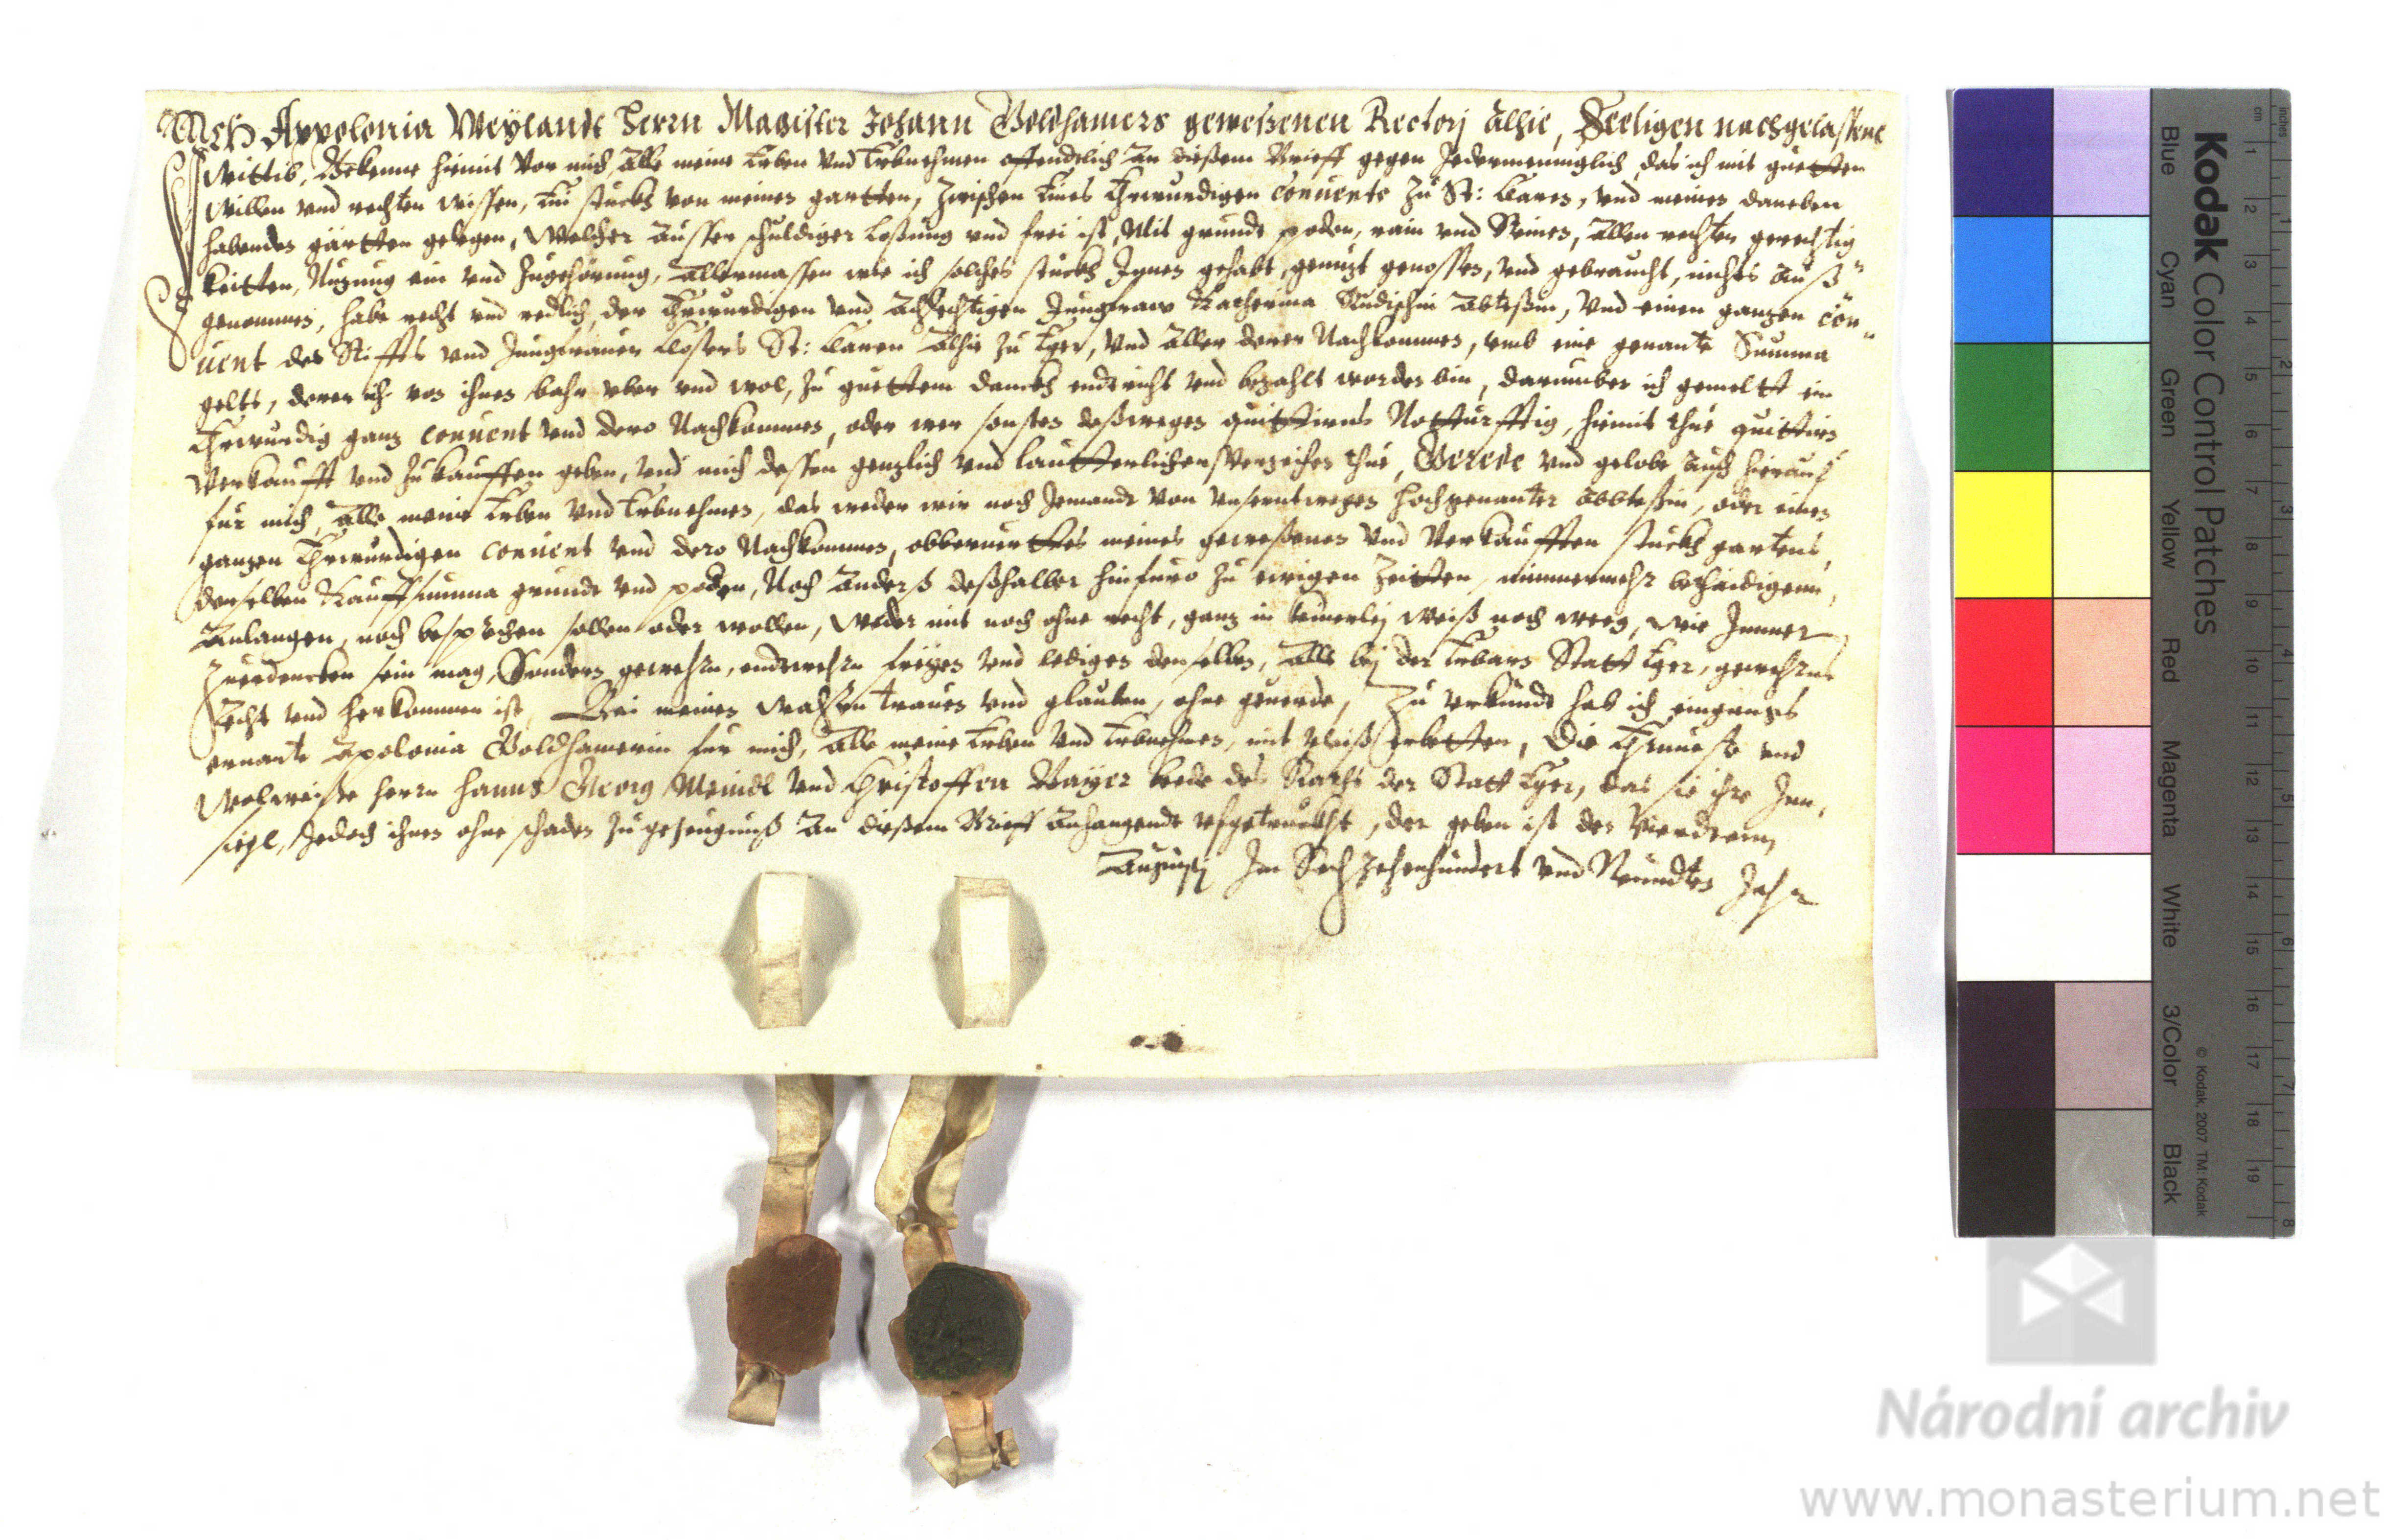 Ich Appolonia Weylandt Herrn Magister Johann Goldhamers geweßenen Rectorj alhie, Seeligen nachgelassene
wittib, Bekenne hiemit vor mich, alle meine Erben vnd Erbnehmen offendtlich an dießem Brieff gegen Jedermenniglich, das ich mit guetten
willen vnd rechten wissen, Ein stuckh von meinen gartten, zwischen Eines Ehrwurdigen Conuents zu St: Claren, vnd meines daneben
habenden gärtten gelegen, Welcher ausser schuldiger Loßung vnd frei ist, Mit grundt poden, rain vnd Steinen, allen rechten gerechtig
keitten, Nuzung ein vnd Zugehörung, allermassen wie ich solches stuckh Innen gehabt, genuzt genossen, vnd gebraucht, nichts auß"
genommen, habe recht vnd redlich, der Ehrwurdigen vnd Jungfraw Katherina Abteßin, vnd einen ganzen Con"
uent des Stiffts vnd Jungfrauen Closters St: Claren alhie zu Eger, vnd allen deren Nachkommen, vmb eine genante Summa
gelts, deren ich von ihnen bahr vber vnd wol, zu guettem danckh endtricht vnd bezahlt worden bin, darumber ich gemeltt ein
Ehrwurdig ganz Conuent vnd dero Nachkommen, oder wer sonsten deßwegen quittirens Notturfftig, hiemit thue quittiren
Verkaufft vnd zukauffen geben, vnd mich dessen genzlich vnd lautterlichen Verzeihen thue, Gerede vnd gelobe auch hierauf
für mich, alle meine Erben vnd Erbnehmen, das weder wir noch Jemandt von vnserntwegen hochgenanter abbteßin, oder einen
ganzen Ehrwürdigen Conuent vnd dero Nachkommen, obberuerttes meines geweßenen vnd Verkaufften stuckh gartens,
derselben Kauffsumma grundt vnd poden, Noch anderß deßhalber hinfuro zu ewigen Zeitten, nimmermehr
anlangen, noch besprechen sollen oder wollen, weder mit noch ohne recht, ganz in keinerley weiß noch weeg, wie Immer
zuerdencken sein mag, Sondern gewehrn, endtwehrn freyen vnd ledigen denselben, alls bey der Erbarn Statt Eger, gewehrns
Recht vnd herkommen ist, Bei meinen wahren trauen vnd glauben, ohne geuerde, Zu vrkundt hab ich eingangs
ernante Apolonia Goldhamerin für mich, alle meine Erben vnd Erbnehmen, mit vleiß erbetten, Die Ehrnueste vnd
Wolweiße Herrn Hanns Georg Meindl vnd Christoffen Bayer beede des Raths der Statt Eger, das sie ihre Inn,
sigl, Jedoch ihnen ohne schaden zu gezeugnuß an dießem Brieff anhangendt vfgetruckht, der geben ist den
Augustj Im Sechzehenhundert vnd Neundten Jahr
Kodak Color Control Patches
Blue Cyan Green Yellow Red Magenta White 3/Color Black
© Kodak, 2007 TM: Kodak
cm 1 2 3 4 5 6 7 8 9 10 11 12 13 14 15 16 17 18 19
inches 1 2 3 4 5 6 7 8
Národní archiv
www.monasterium.net